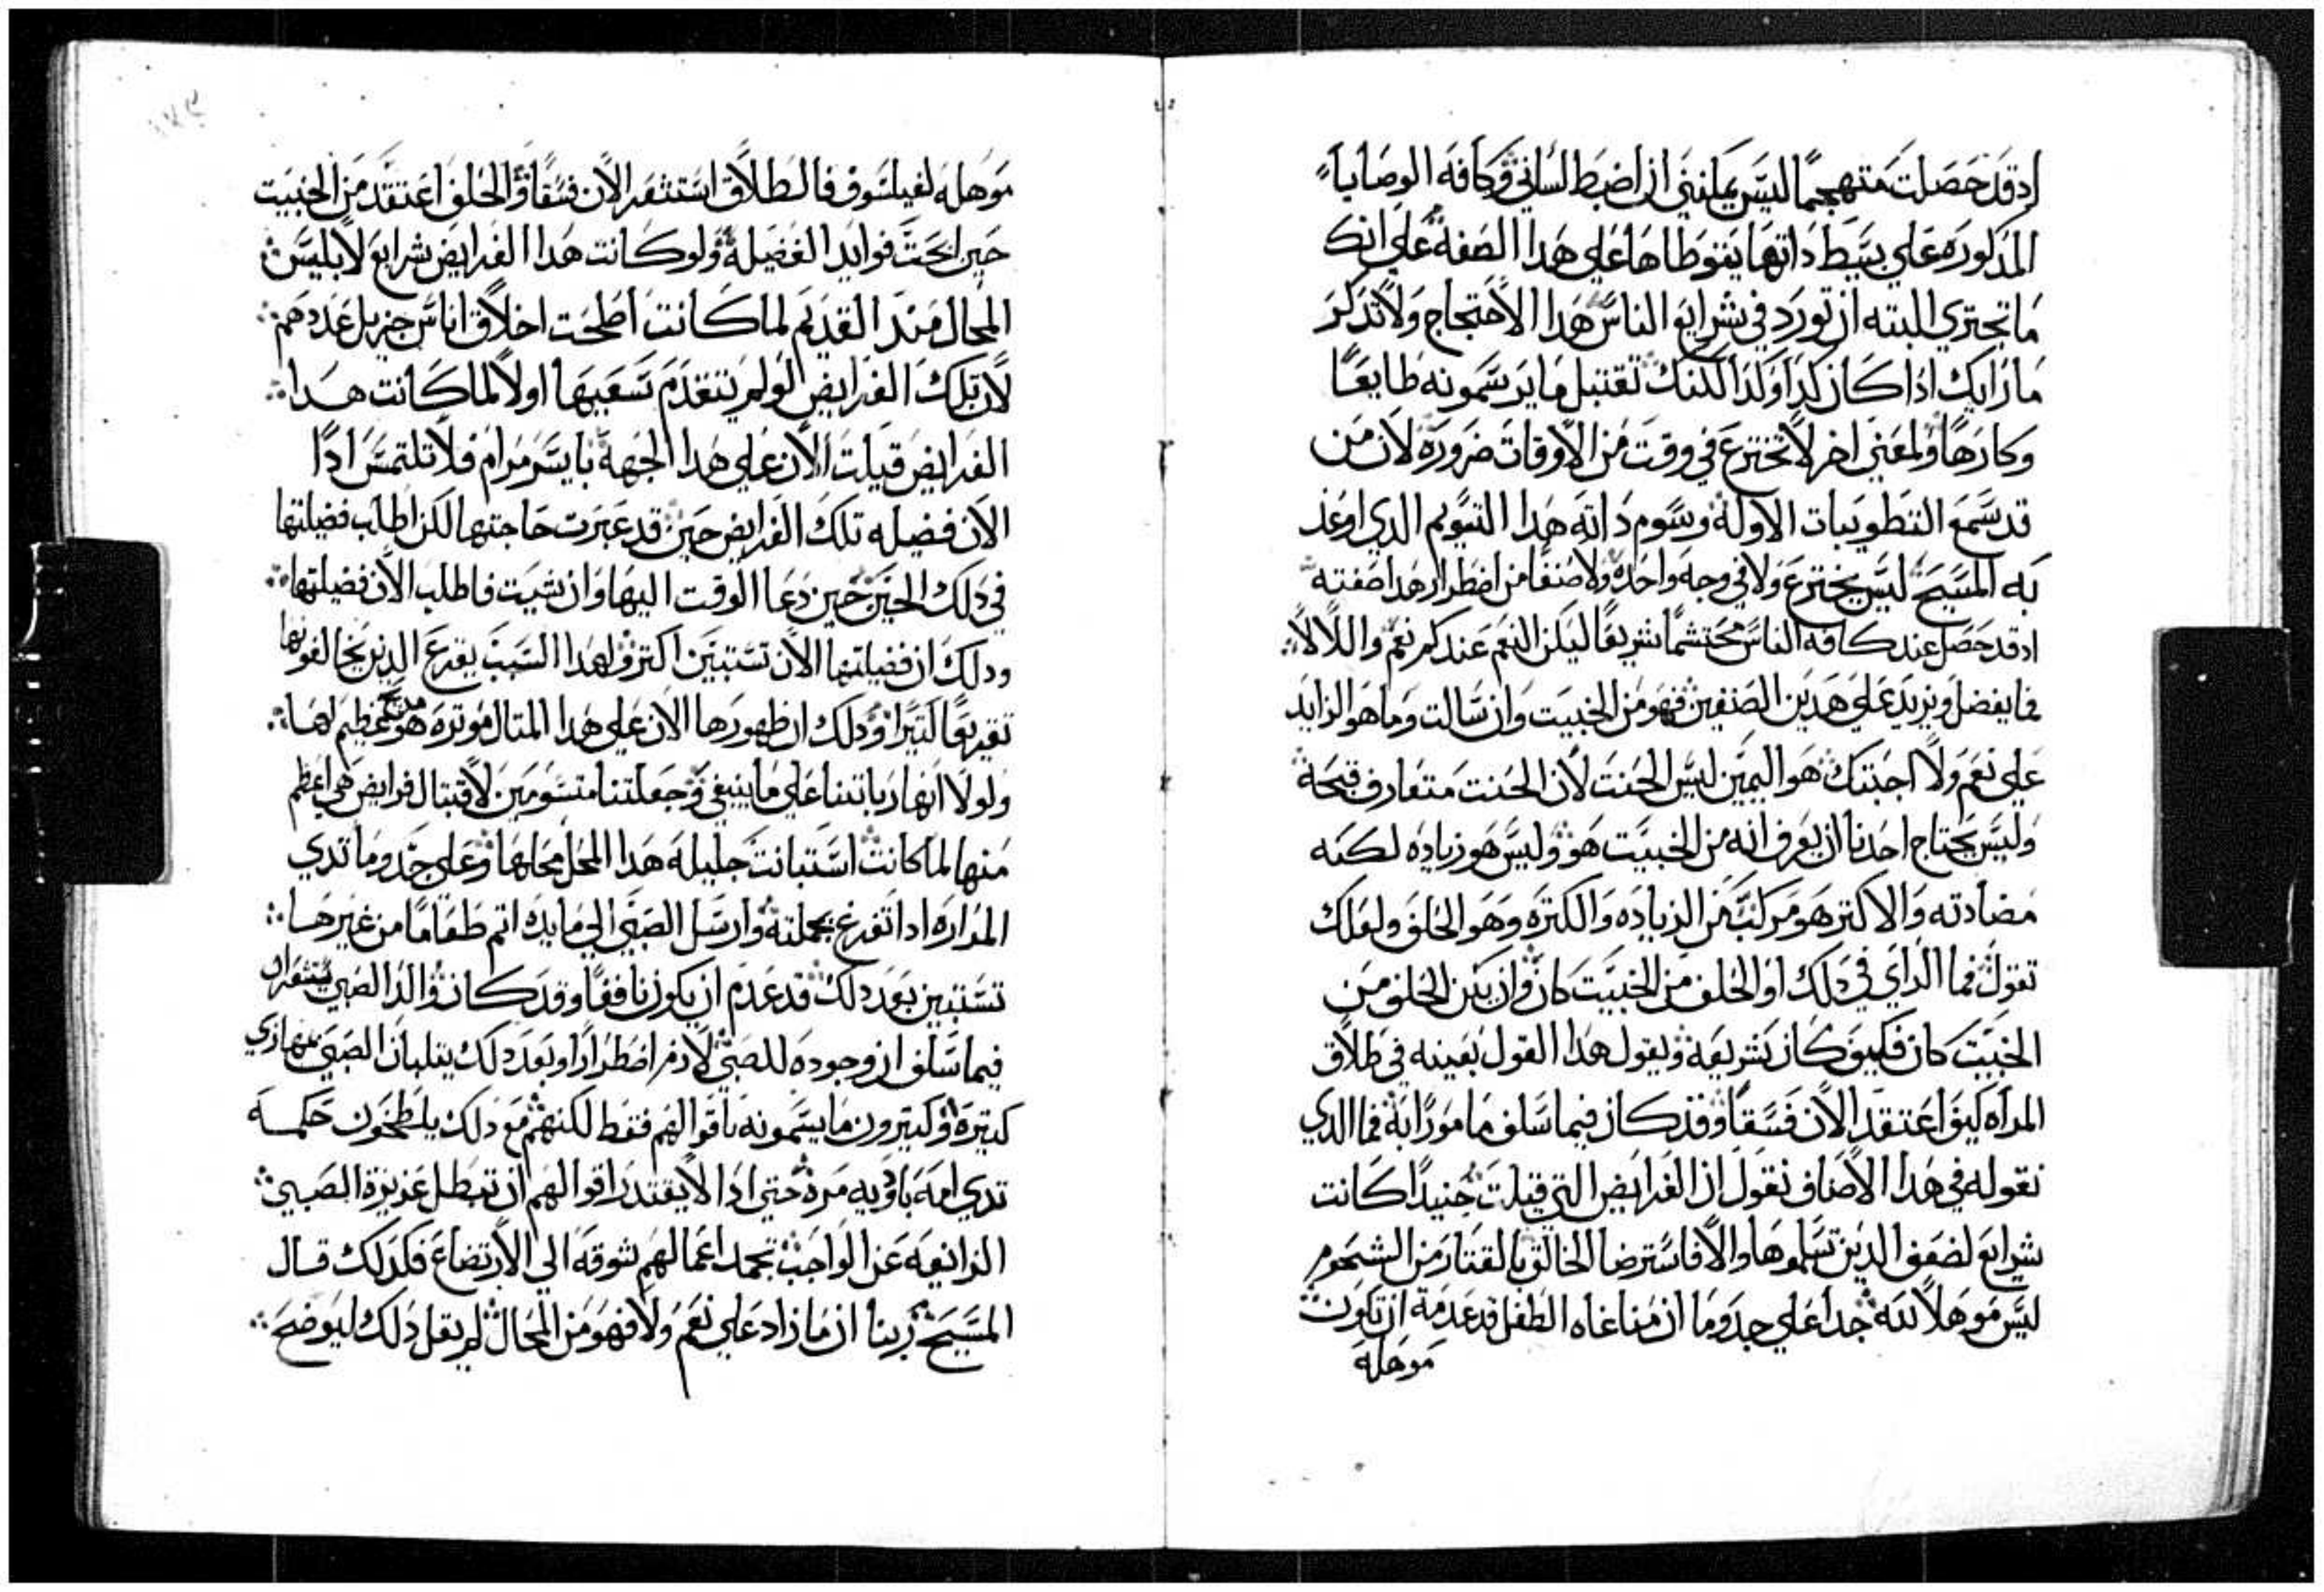 ادقد حصلت متهجمًا ليس يمكنني ان اضبط لساني وكافه الوصايا
المدكوره علي بسيط داتها يتوطاها علي هدا الصفه علي انك
ما تجتري البته ان تورد في شرايع الناس هدا الاحتجاج ولا تدكر
ما رايك ادا كان كدا وكدا لكنك تقتبل ما يرسمونه طايعًا
وكارهًا ولمعني اخر لا تخترع في وقت من الاوقات ضروره لان من
قد سمع التطويبات الاوله وسوم داته هدا التسويم الدي اوعد
به المسيح ليس يخترع ولا في وجه واحده ولا صنفًا من اضطرار هدا صفته
ادقد حصل عند كافه الناس محتشمًا شريفًا ليكن النعم عندكم نعم واللا لا
فما يفضل ويزيد علي هدين الصنفين فهو من الخبيت وان سالت وما هو الزايد
علي نعم ولا اجبتك هو اليمين ليس الحنت لان الحنت متعارف قبحه
وليس يحتاج احدنا ان يعرف انه من الخبيت هو وليس هو زياده لكنه
مضادته والاكتر هو مركب من الزياده والكتره وهو الحلف ولعلك
تقول فما الراي في دلك او الحلف من الخبيت كان وان يكن الحلف من
الخبيت كان فكيف كان بشريعه ويقول هدا القول بعينه في طلاق
المراه كيف اعتقد الان فسقًا وقد كان فيما سلف مامورًا به فما الدي
نقوله في هدا الاصناف نقول ان الفرايض التي قيلت حنيدًا كانت
شرايع لضعف الدين تسلموها والا فاسترضا الخالق بالقتار من الشحوم
ليس موهلًا لله جدا علي حدوما ان مناغاه الطفل قد عدمة ان تكون
موهله
موهله لفيلسوف فالطلاق استشعر الان فسقًا والحلف اعتقد من الخبيت
حين نجحت فوايد الفضيله ولو كانت هدا الفرايض شرايع لابليس
المحال مند القديم لما كانت اصلحت اخلاق اناس جزيل عددهم
لان تلك الفرايض لو لم تتقدم تسعيها اولًا لما كانت هدا
الفرايض قيلت الان علي هدا الجهة بايسر مرام فلا تلتمس ادًا
الان فضيله تلك الفرايض حين قد عبرت حاجتها لكن اطلب فضيلتها
في دلك الحين حين دعا الوقت اليها وان شيت فاطلب الان فضيلتها
ودلك ان فضيلتها الان تستبين اكتر ولهدا السبب يقرع الدين يخالفونها
تقريعًا كتيرًا ودلك ان ظهورها الان علي هدا المتال موتره هو مديح عظيم لها
ولولا انها ربتنا علي ما ينبغي وجعلتنا متسومين لاقتبال فرايض هي اعظم
منها لما كانت استبانت جليله هدا المحل محلها وعلي حدوما تدي
المراره ادا تفرغ بجملته وارسل الصبي الي مايده اتم طعامًا من غيرها
تستبين بعد دلك قد عدم ان يكون نافعًا وقد كان والد الصبي يستشعر ان
فيما سلف ان وجوده للصبي لازم اضطرارًا وبعد دلك يتلبان الصبي بتهازي
كتيره وكتيرون ما يشتمونه باقوالهم فقط لكنهم مع دلك يلطخون حلمه
تدي امه بادويه مره حتي ادا لا يقتدر اقوالهم ان تبطل غريزة الصبي
الزايغه عن الواجب تخمد اعمالهم شوقه الي الارتضاع فكدلك قال
المسيح ربنا ان ما زاد علي نعم ولا فهو من المحال لم يقل دلك ليوضح